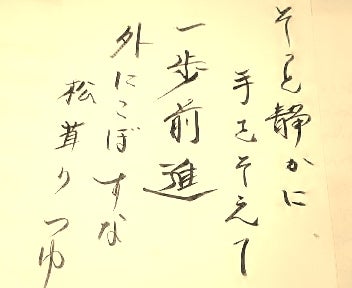 そっと静かに
手をそえて
一歩前進
外にこぼすな
松茸のつゆ